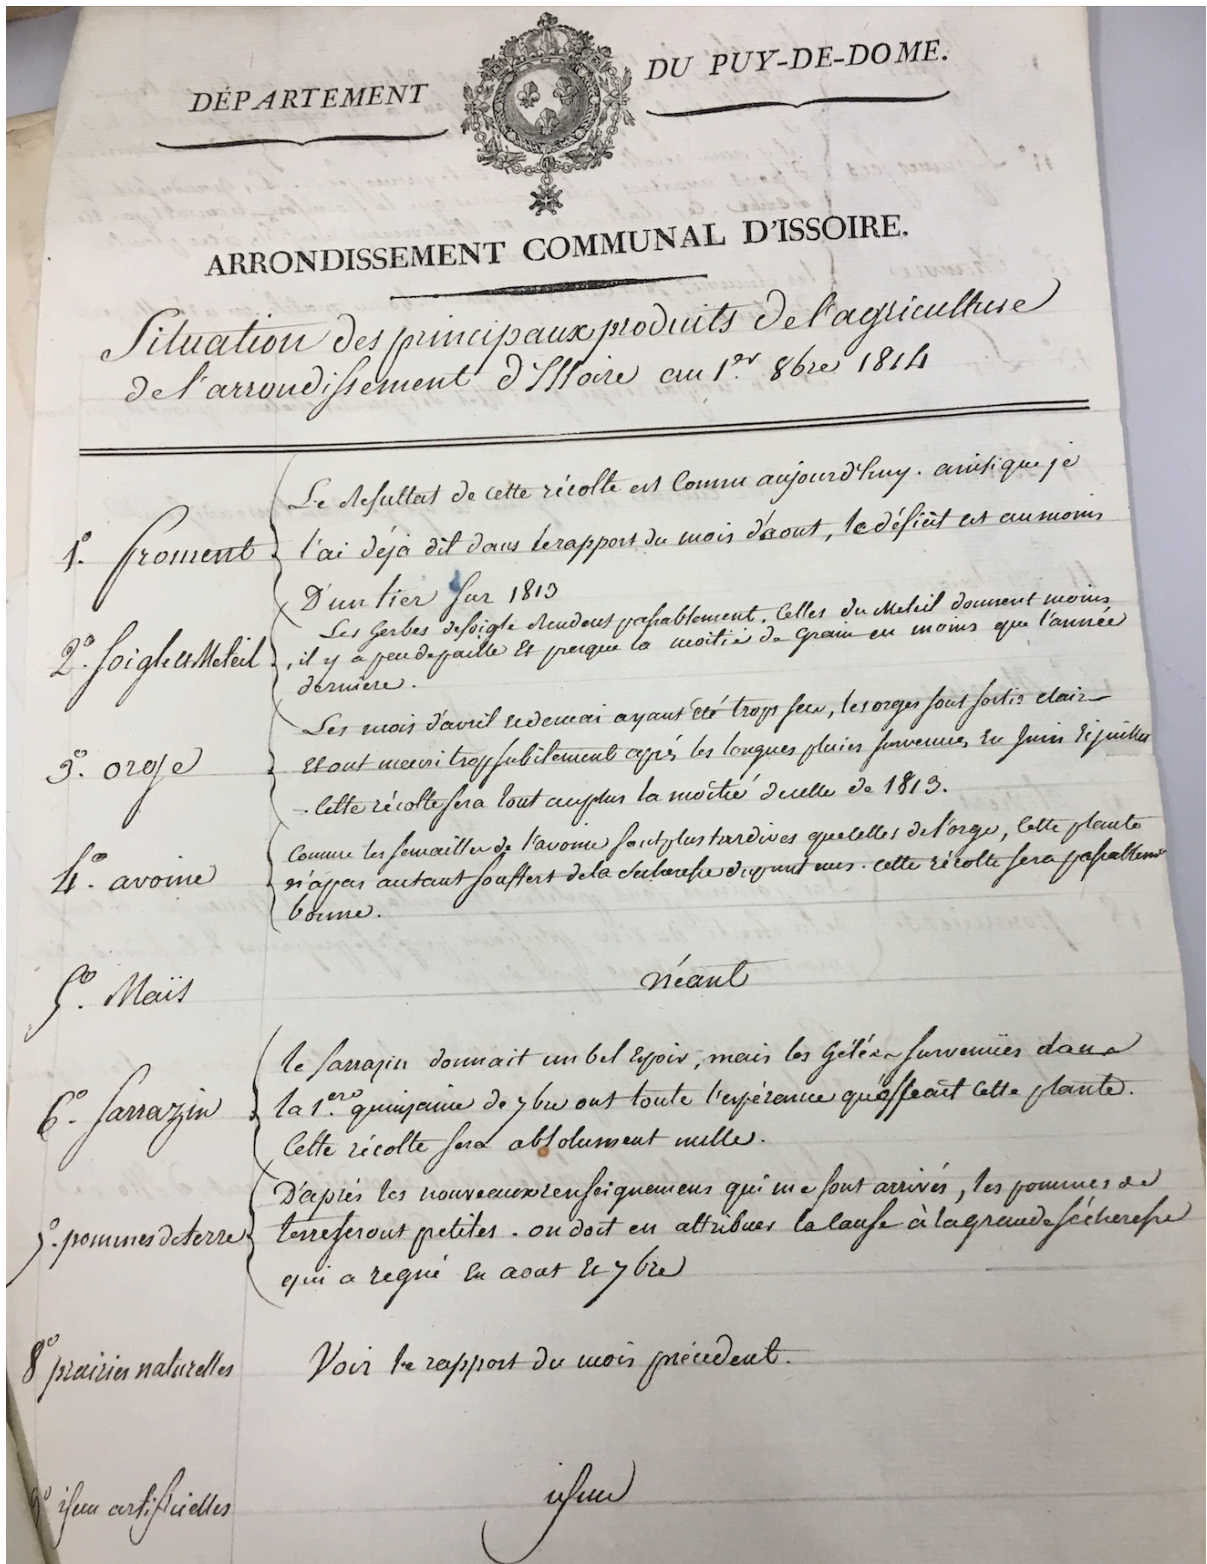 DÉPARTEMENT DU PUY-DE-DOME.
ARRONDISSEMENT COMMUNAL D'ISSOIRE.
Situation des principaux produits de l'agriculture
de l'arrondissement d'Issoire au 1er. 8bre 1814
1º. froment
Le resultat de cette récolte est connu aujourd'huy. ainsi que je
l'ai déjà dit dans le rapport du mois d'aout, le déficit est au moins
D'un tier sur 1813
2º. soigle et Meteil
Les Gerbes de soigle rendent passablement. Celles du Meteil donnent moins
, il y a peu de paille et presque la moitié de grain en moins que l'année
derniere.
3º. orge
Les mois d'avril et de mai ayant été trop secs, les orges sont sortis clair
et ont meuri trop subitement après les longues pluies survenues En Juin Et juillet
. Cette récolte sera tout au plus la moitié de celle de 1813.
4º. avoine
Comme les semailles de l'avoine sont plus tardives que celles de l'orge, Cette plante
n'a pas autant souffert de la Sécheresse du printems. cette récolte sera passablement
bonne.
5º. Maïs
Néant
6º. sarrazin
le sarrazin donnait un bel Espoir, mais les Gélées survenues dans
la 1ere quinzaine de 7bre ont toute l'espérance qu'offrait Cette plante.
Cette récolte sera absolument nulle.
7º. pommes de terre
D'après les nouveaux renseignemens qui me sont arrivés, les pommes de
terre seront petites. on doit en attribuer la Cause à la grande sécheresse
qui a regné En aout Et 7bre
8º prairies naturelles
Voir le rapport du mois précedent.
9º idem artificielles
idem